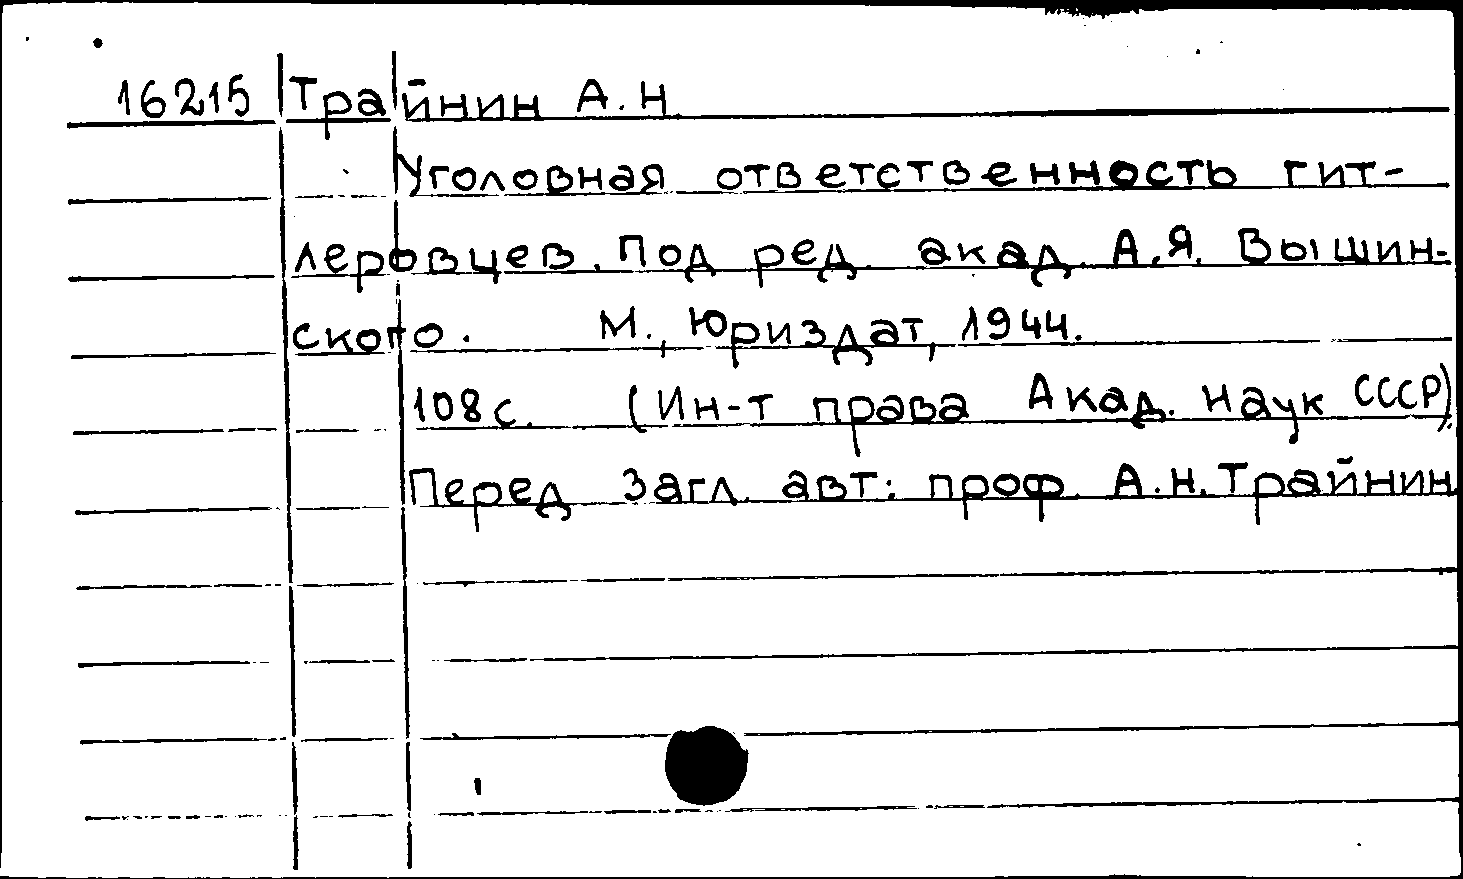 16215 Трайнин А.Н.
Уголовная ответственность гит-
леровцев. Под ред. акад. А.Я. Вышин-
ского. М., Юриздат, 1944.
108с. (Ин-т права Акад. наук СССР).
Перед загл. авт: проф. А.Н. Трайнин